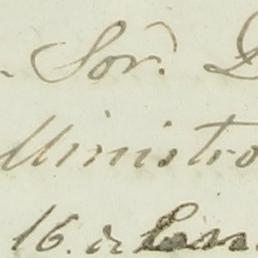 Sor. D
Ministro
16. de